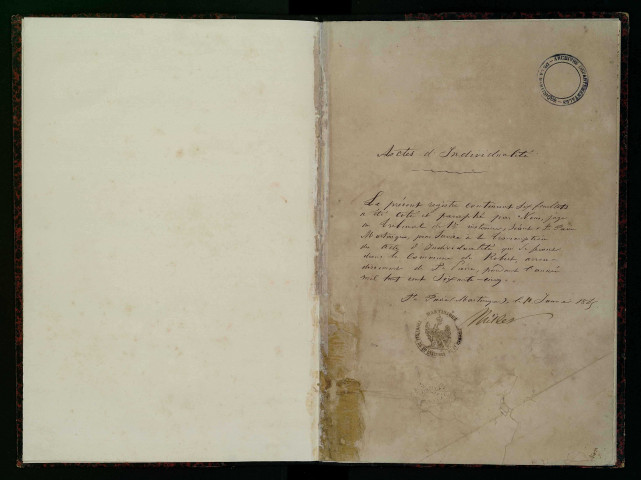 Actes d'Individualité
Le présent registre contenant six feuillets
a été coté et paraphé par Nous, juge
du Tribunal de 1re instance, séant à St Pierre
Martinique, pour servir à la transcription
des actes d'Individualité qui se passeront
dans la Commune du Robert, arron-
dissement de St Pierre, pendant l'année
mil huit cent soixante-cinq.
St Pierre Martinique, le Janvier 1865
ARCHIVES DÉPARTEMENTALES
MARTINIQUE